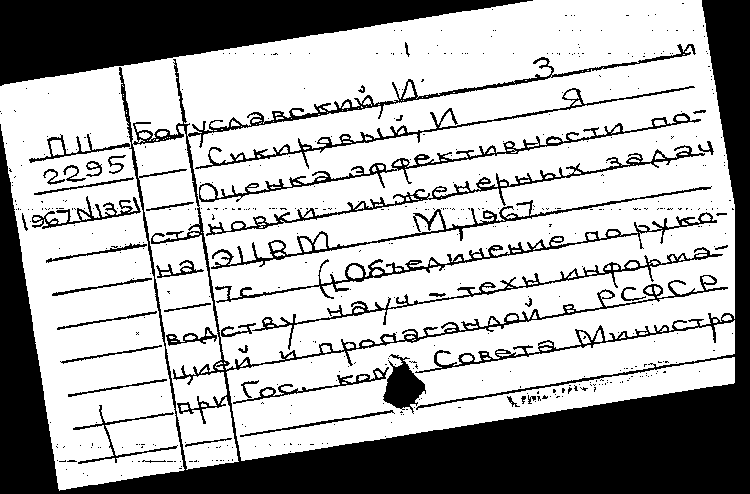 Богуславский, И. З и
Сикирявый, И Я
Оценка эффективности по-
становки инженерных задач
на ЭЦВМ. М, 1967
7с. (Объединение по руко-
водству науч. - техн информа-
цией и пропагандой в РСФСР
при Гос. ком Совета Министро
П 11
2295
1967 N1351